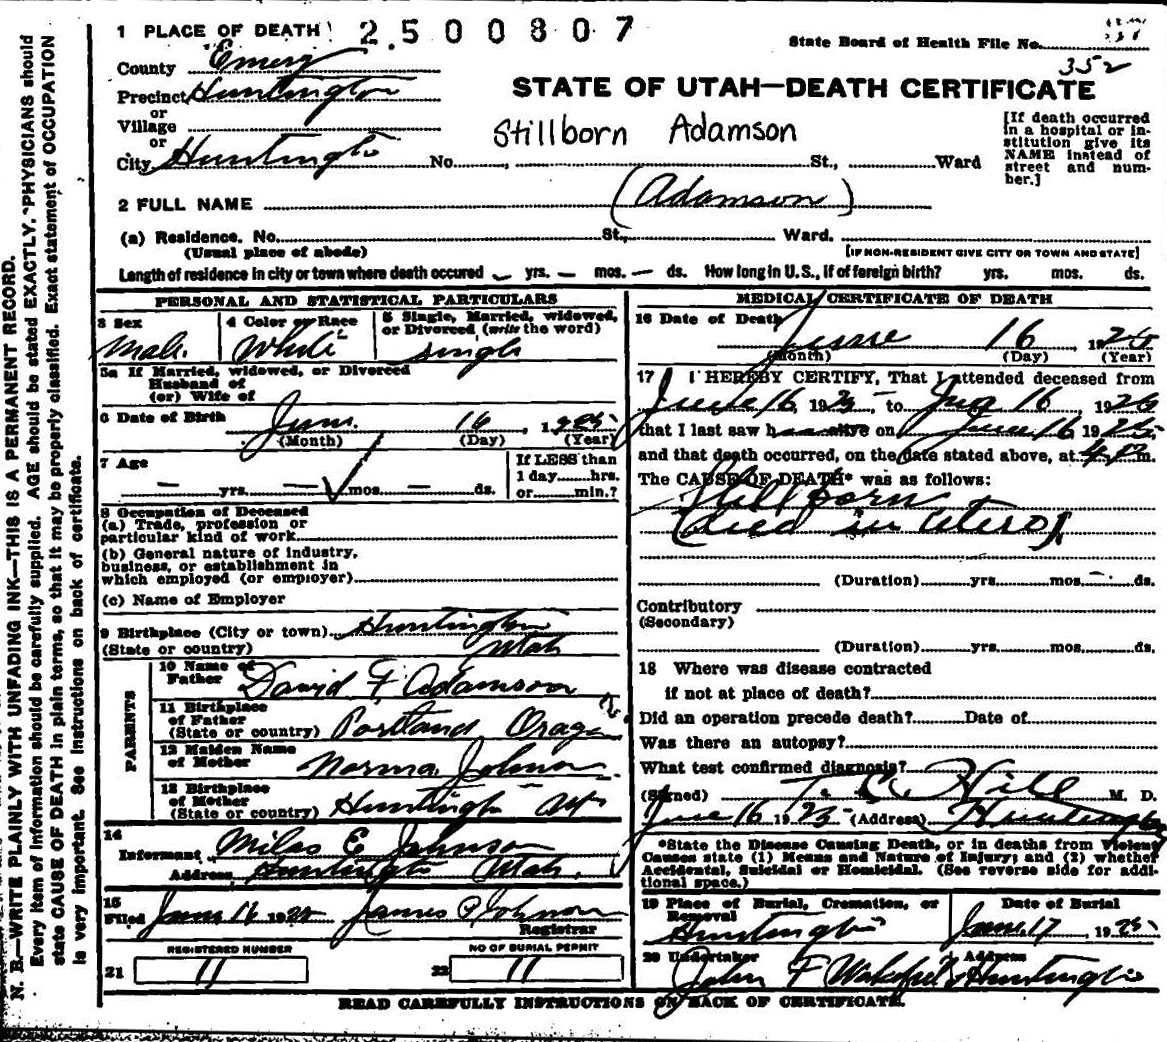 1 PLACE OF DEATH 2500807
State Board of Health File No.
352
County Emery
Precinct Huntington
or
Village
or
City Huntington No. St., Ward
STATE OF UTAH—DEATH CERTIFICATE
Stillborn Adamson
[If death occurred
in a hospital or in-
stitution give its
NAME instead of
street and num-
ber.]
2 FULL NAME (Adamson)
(a) Residence. No. St., Ward.
(Usual place of abode) [IF NON-RESIDENT GIVE CITY OR TOWN AND STATE]
Length of residence in city or town where death occured – yrs. – mos. – ds. How long in U.S., if of foreign birth? yrs. mos. ds.
PERSONAL AND STATISTICAL PARTICULARS
3 Sex 4 Color or Race 5 Single, Married, widowed,
or Divorced (write the word)
Male. White Single
5a If Married, widowed, or Divorced
Husband of
(or) Wife of
6 Date of Birth June. 16, 1925
(Month) (Day) (Year)
7 Age If LESS than
1 day......hrs.
— yrs. — mos — ds. or......min.?
8 Occupation of Deceased
(a) Trade, profession or
particular kind of work
(b) General nature of industry,
business, or establishment in
which employed (or employer)
(c) Name of Employer
9 Birthplace (City or town) Huntington
(State or country) Utah
PARENTS
10 Name of
Father David F Adamson
11 Birthplace
of Father
(State or country) Portland Oragon
12 Maiden Name
of Mother Norma Johnson
13 Birthplace
of Mother
(State or country) Huntington Ut
14
Informant Miles E Johnson
Address Huntington Utah.
15
Filed June 16 1925 James P Johnson
Registrar
REGISTERED NUMBER NO OF BURIAL PERMIT
21 11 22 11
MEDICAL CERTIFICATE OF DEATH
16 Date of Death June 16, 1925
(Month) (Day) (Year)
17 I HEREBY CERTIFY, That I attended deceased from
June 16, 1925, to 16 192
that I last saw h alive on June 16 1925
and that death occurred, on the date stated above, at 4 P m.
The CAUSE OF DEATH* was as follows:
Stillborn
(died in utero).
(Duration) yrs. mos. ds.
Contributory
(Secondary)
(Duration) yrs. mos. ds.
18 Where was disease contracted
if not at place of death?
Did an operation precede death? Date of
Was there an autopsy?
What test confirmed diagnosis?
(Signed) T. C. Hill M. D.
June 16 1925 (Address) Huntington
*State the Disease Causing Death, or in deaths from Violent
Causes state (1) Means and Nature of Injury; and (2) whether
Accidental, Suicidal or Homicidal. (See reverse side for addi-
tional space.)
19 Place of Burial, Cremation, or Date of Burial
Removal
Huntington June 17, 1925
20 Undertaker Address
John F Wakefield Huntington
READ CAREFULLY INSTRUCTIONS ON BACK OF CERTIFICATE.
N. B.—WRITE PLAINLY WITH UNFADING INK—THIS IS A PERMANENT RECORD.
Every item of information should be carefully supplied. AGE should be stated EXACTLY. PHYSICIANS should
state CAUSE OF DEATH in plain terms, so that it may be properly classified. Exact statement of OCCUPATION
is very important. See instructions on back of certificate.